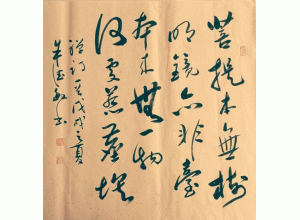 菩提本無樹
明鏡亦非臺
本來無一物
何處惹塵埃
禪詩一首戊戌之夏